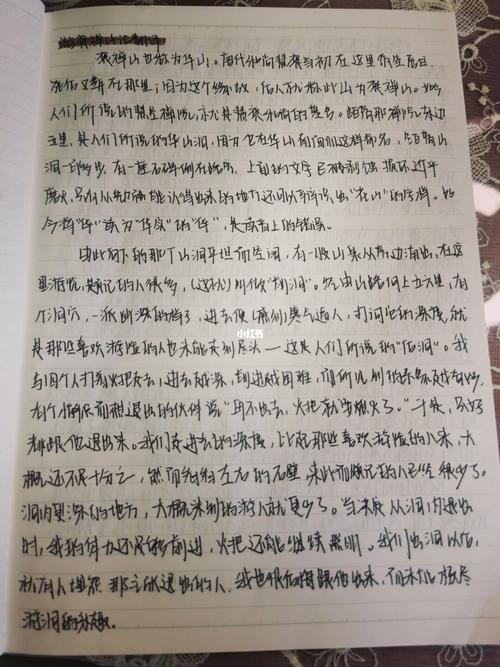 游褒禅山记翻译
褒禅山也称为华山。唐代和尚慧褒当初在这里筑室居住,
死后又葬在那里;因为这个缘故,后人就称此山为褒禅山。如今
人们所说的慧空禅院,就是慧褒和尚的墓舍。距离那禅院东边
五里,是人们所说的华山洞,因为它在华山南面而这样命名。距离山
洞一百多步,有一座石碑倒在路旁,上面的文字已被剥蚀、损坏近乎
磨灭,只有从勉强能认得出来的地方还可以辨识出“花山”的字样。如
今将“华”读为“华实”的“华”,是读音上的错误。
由此向下的那个山洞平坦而空阔,有一股山泉从旁边涌出,在这
里游览、题记的人很多,(这就)叫做“前洞”。经由山路向上五六里,有
个洞穴,一派幽深的样子,进去便(感到)寒气逼人,打问它的深度,就
是那些喜欢游险的人也未能走到尽头——这是人们所说的“后洞”。我
与四个人打着火把走进去,进去越深,前进越困难,而所见到的景象越奇妙。
有个懈怠而想退出的伙伴说:“再不出去,火把就要熄灭了。”于是,只好
都跟他退出来。我们走进去的深度,比起那些喜欢游险的人来,大
概还不足十分之一,然而看看左右的石壁,来此而题记的人已经很少了。
洞内更深的地方,大概来到的游人就更少了。当决定从洞内退出
时,我的体力还足够前进,火把还能继续照明。我们出洞以后,
就有人埋怨那主张退出的人,我也很后悔跟他出来,而未能极尽
游洞的乐趣。
小红书